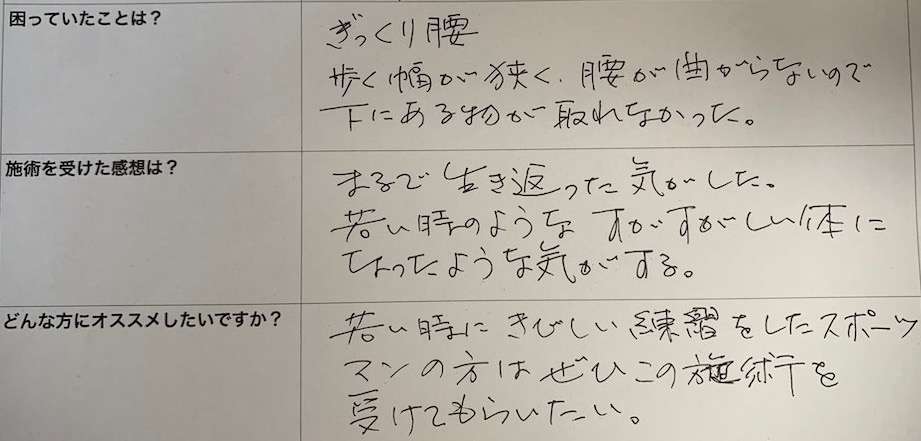 困っていたことは？
ぎっくり腰
歩く幅が狭く、腰が曲がらないので
下にある物が取れなかった。
施術を受けた感想は？
まるで生き返った気がした。
若い時のようなすがすがしい体に
なったような気がする。
どんな方にオススメしたいですか？
若い時にきびしい練習をしたスポーツ
マンの方はぜひこの施術を
受けてもらいたい。